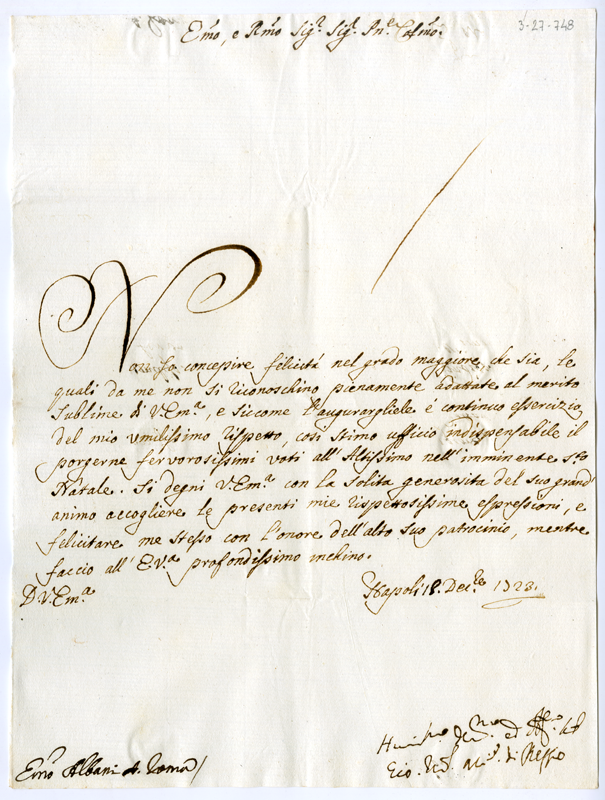 3-27-748
Emo, e Rmo Sigr. Sigr. Pne. Colmo.
Non so concepire felicità nel grado maggiore, che sia, le
quali da me non si riconoschino pienamente adattate al merito
sublime di V. Emza, e siccome l'augurargliele è continuo essercizio
del mio umilissimo rispetto, così stimo ufficio indispensabile il
porgerne fervorosissimi voti all'Altissimo nell'imminente Sto
Natale. Si degni V. Emza con la solita generosità del suo grand'
animo accogliere le presenti mie rispettosissime espressioni, e
felicitare me stesso con l'onore dell'alto suo patrocinio, mentre
faccio all'E. Va profondissimo inchino.
D. V. Emza
Napoli 18. Decre 1723.
Emo Albani di Roma
Gio.